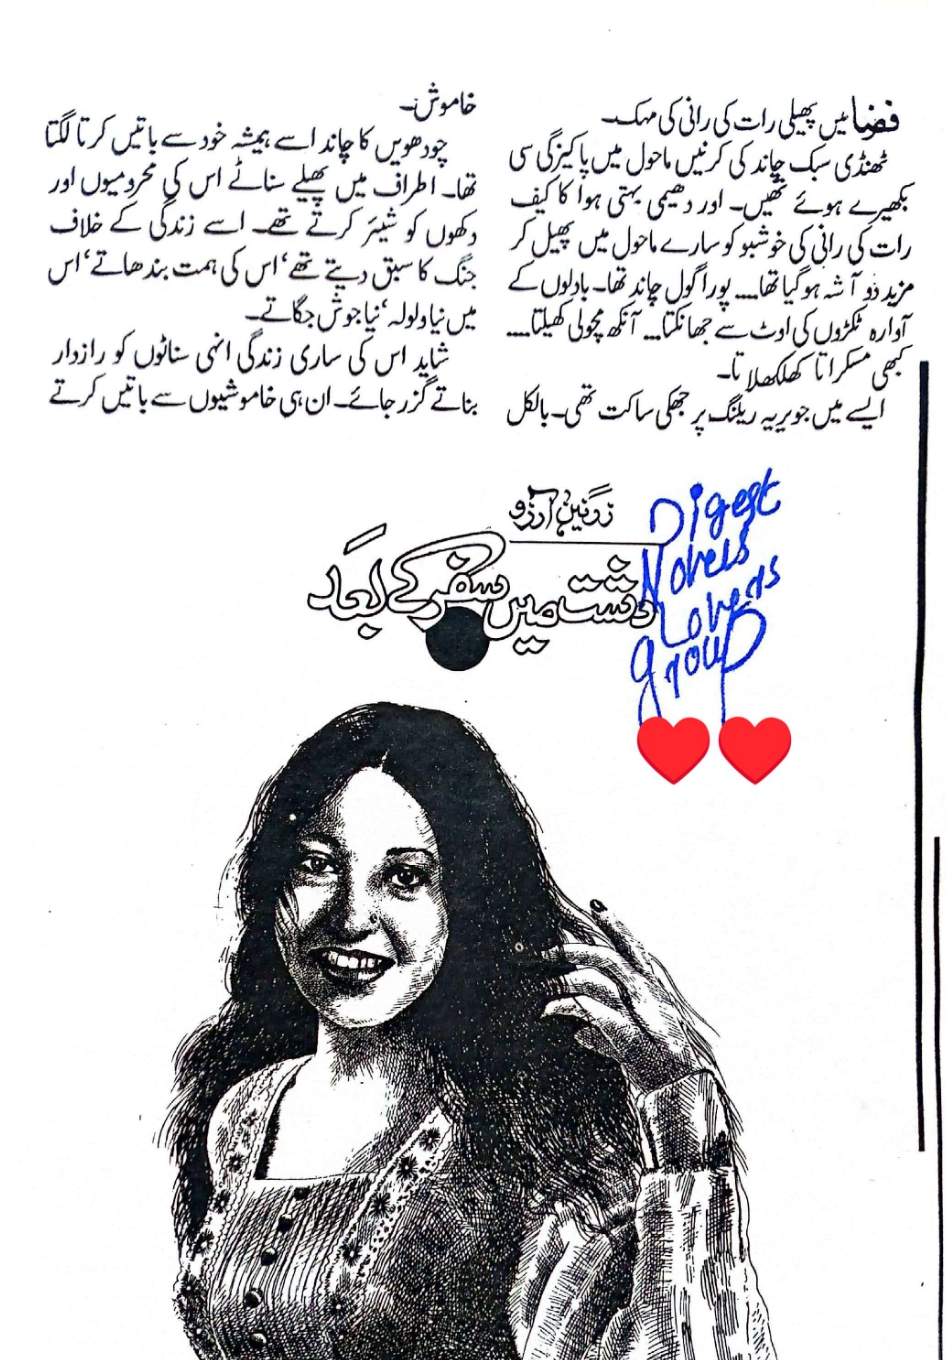 فضا میں پھیلی رات کی رانی کی مہک۔
ٹھنڈی سبک چاند کی کرنیں ماحول میں پاکیزگی سی
بکھیرے ہوئے تھیں۔ اور دھیمی بہتی ہوا کا کیف
رات کی رانی کی خوشبو کو سارے ماحول میں پھیل کر
مزید دو آشہ ہو گیا تھا.... پورا گول چاند تھا۔ بادلوں کے
آوارہ ٹکڑوں کی اوٹ سے جھانکتا... آنکھ مچولی کھیلتا....
کبھی مسکراتا کھلکھلاتا۔
ایسے میں جویریہ ریلنگ پر جھکی ساکت تھی۔ بالکل
خاموش۔
چودھویں کا چاند اسے ہمیشہ خود سے باتیں کرتا لگتا
تھا۔ اطراف میں پھیلے سناٹے اس کی محرومیوں اور
دکھوں کو شیئر کرتے تھے۔ اسے زندگی کے خلاف
جنگ کا سبق دیتے تھے‘ اس کی ہمت بندھاتے‘ اس
میں نیا ولولہ‘ نیا جوش جگاتے۔
شاید اس کی ساری زندگی انہی سناٹوں کو رازدار
بناتے گزر جائے۔ ان ہی خاموشیوں سے باتیں کرتے
زرنین آرزو
دشت میں سفر کے بعد
Digest
Novels
Lovers
group